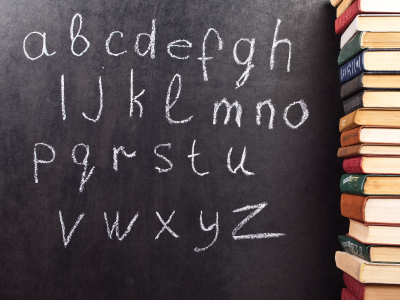 a b c d e f g h
i j k l m n o
p q r s t u
v w x y z